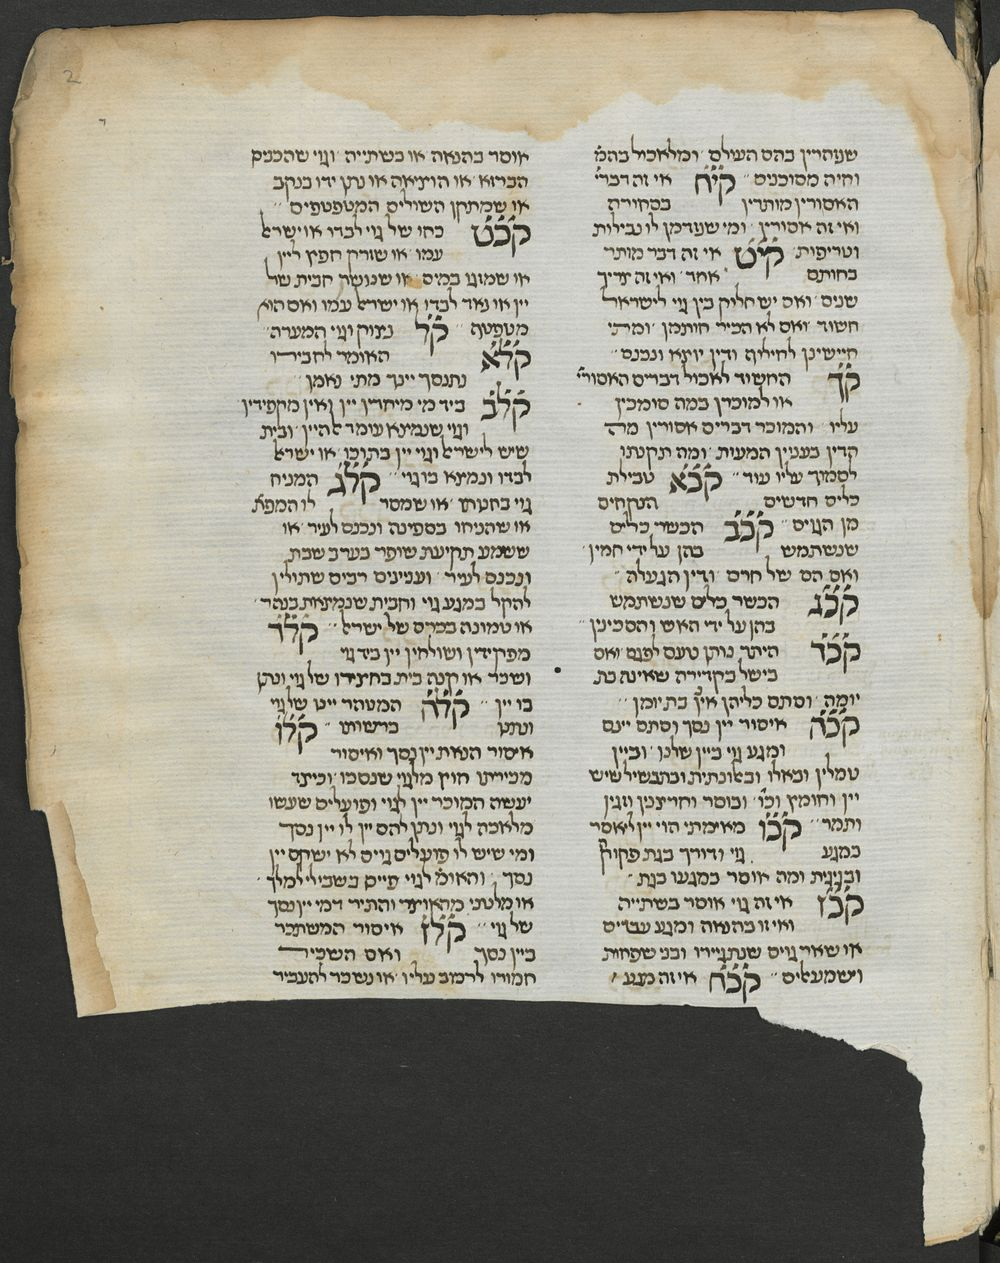 2
שנזהרין בהם העולם ומלאכול בהמ׳
וחיה מסוכנים קי״ח אי זה דברי׳
האסורין מותרין בסחורה
ואי זה אסורין ומי שנזדמן לו נבילות
וטריפות קי״ט אי זה דבר מותר
בחותם אחד ואי זה צריך
שנים ואם יש חלוק בין גוי לישראל
חשוד ואם לא הכיר חותמו ומתי
חיישינן לחילוף ודין יוצא ונכנס
ק״ך החשוד לאכול דברים האסורי׳
או למוכרן במה סומכין
עליו והמוכר דברים אסורין מה
הדין בענין המעות ומה תקנתו
לסמוך עליו עוד קכ״א טבילת
כלים חדשים הנקחים
מן הגוים קכ״ב הכשר כלים
שנשתמש בהן על ידי חמין
ואם הם של חרס ודין הגעלה
קכ״ג הכשר כלים שנשתמש
בהן על ידי האש והסכינין
קכ״ד היתר נותן טעם לפגם ואם
בישל בקדירה שאינה בת
יומה וסתם כליהן אין בת יומן
קכ״ה איסור יין נסך וסתם יינם
ומגע גוי ביין שלנו וביין
טמלין ובאלו ובאלונתית ובתבשיל שיש
יין וחומץ וכו׳ ובוסר וחרצנין וזגין
ותמד קכ״ו מאימתי הוי יין ליאסר
במגע גוי ודורך בגת פקוק׳
ובגיגית ומה אוסר במגעו בגת
קכ״ז אי זה גוי אוסר בשתייה
ואיזו בהנאה ומגע עבדים
או שאר גוים שנתגיירו ובני שפחות
וישמעלים קכ״ח אי זה מגע
אוסר בהנאה או בשתייה וגוי שהכניס
הברזא או הוציאה או נתן ידו בנקב
או שמתקן השולים המטפטפים
קכ״ט כחו של גוי לבדו או ישראל
עמו או שזרק חפץ ליין
או שמזג במים או שנושך חבית של
יין או נאד לבדו או ישראל עמו ואם הוא
מטפטף ק״ל נצוק וגוי המערה
קל״א האומר לחבירו
נתנסך יינך מתי נאמן
קל״ב ביד מי מיחדין יין ואין מקפידין
וגוי שנמצא עומד אל היין ובית
שיש לישראל וגוי יין בתוכו או ישראל
לבדו ונמצא בו גוי קל״ג המניח
גוי בחנותו או שמסר לו המפת׳
או שהניחו בספינה ונכנס לעיר או
ששמע תקיעת שופר בערב שבת
ונכנס לעיר ועניינים רבים שתולין
להקל במגע גוי וחבית שנמצאת בנהר
או טמונה בכרם של ישראל קל״ד
מפקידין ושולחין יין ביד גוי
ושכר או קנה בית בחצירו של גוי ונתן
בו יין קל״ה המטהר יינו של גוי
ונתנו ברשותו קל״ו
איסור הנאת יין נסך ואיסור
מכירתו חוץ מלגוי שנסכו וכיצד
יעשה המוכר יין לגוי ופועלים שעשו
מלאכה לגוי ונתן להם יין לו יין נסך
ומי שיש לו פועלים גוים לא ישקם יין
נסך והאומ׳ לגוי פייס בשבילי למלך
או מלטני מהאוצר והתיר דמי יין נסך
של גוי קל״ז איסור המשתכר
ביין נסך ואם השכיר
חמורו לרכוב עליו או נשכר להעביר